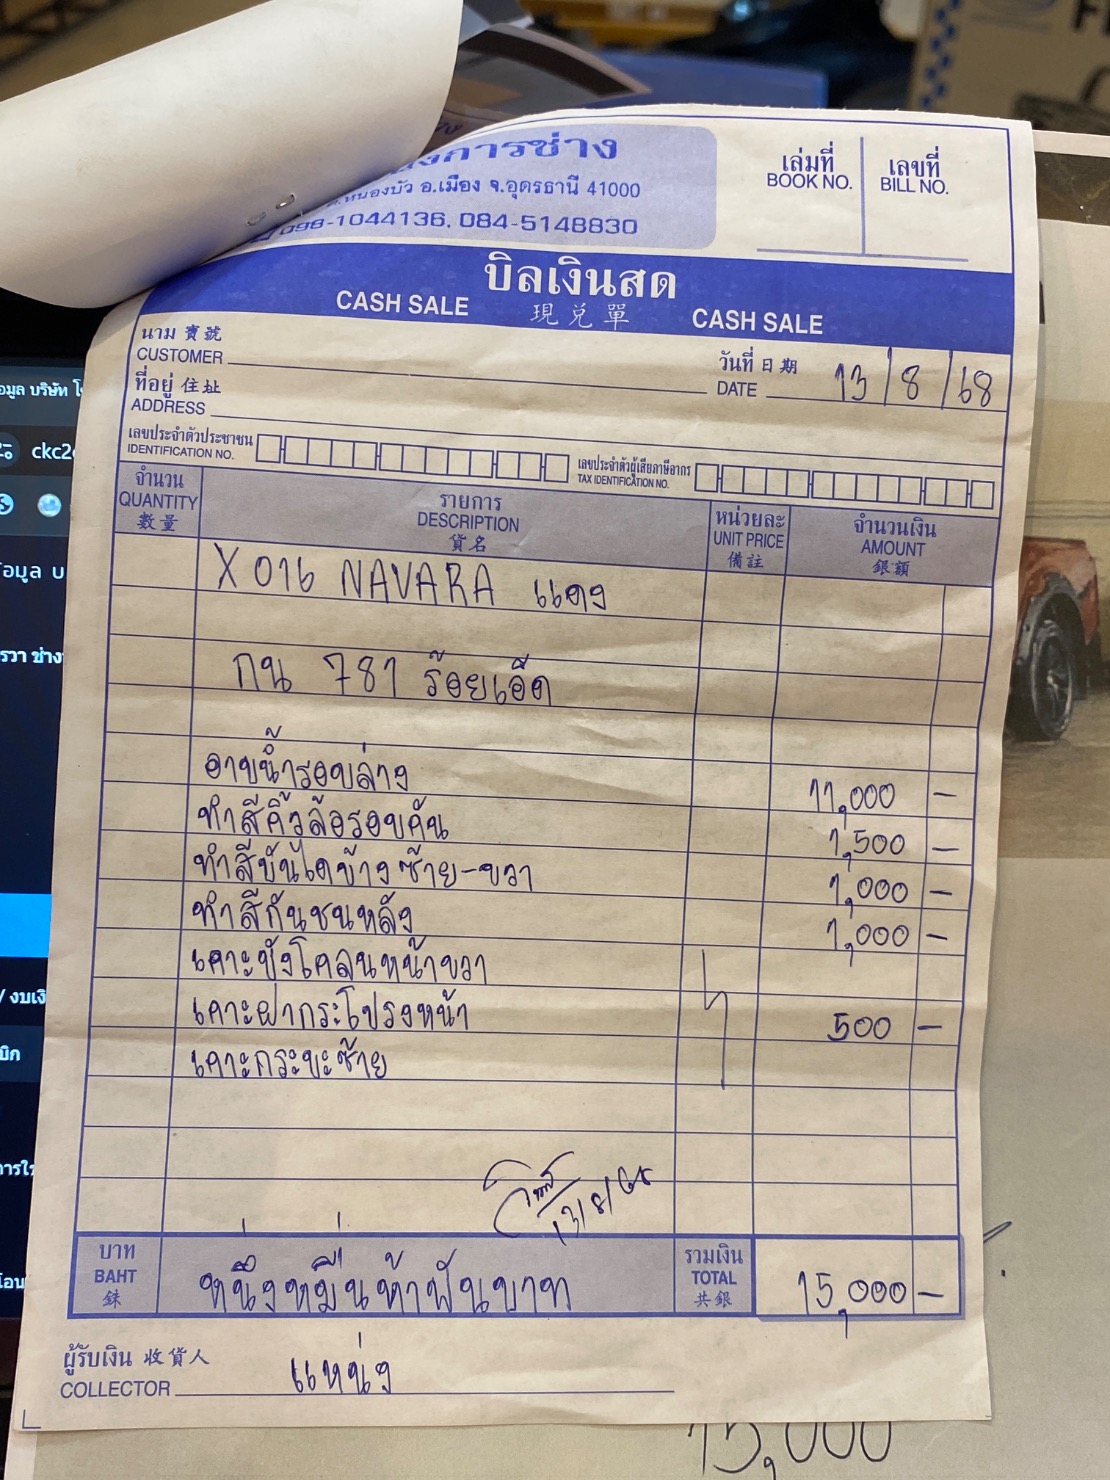 การช่าง
เล่มที่
BOOK NO.
เลขที่
BILL NO.
หนองบัว อ.เมือง จ.อุดรธานี 41000
098-1044136, 084-5148830
บิลเงินสด
CASH SALE 現兌單 CASH SALE
นาม 寶號
CUSTOMER
วันที่ 日期
DATE 13/8/68
ที่อยู่ 住址
ADDRESS
เลขประจำตัวประชาชน
IDENTIFICATION NO.
เลขประจำตัวผู้เสียภาษีอากร
TAX IDENTIFICATION NO.
จำนวน
QUANTITY
數量
รายการ
DESCRIPTION
貨名
หน่วยละ
UNIT PRICE
備註
จำนวนเงิน
AMOUNT
銀額
X016 NAVARA แดง
กน 781 ร้อยเอ็ด
อาบน้ำรอบล่าง 11,000 –
ทำสีคิ้วล้อรอบคัน 1,500 –
ทำสีบันไดข้างซ้าย-ขวา 1,000 –
ทำสีกันชนหลัง 1,000 –
เคาะบังโคลนหน้าขวา
เคาะฝากระโปรงหน้า 500 –
เคาะกระบะซ้าย
13/8/68
บาท
BAHT
銖
หนึ่งหมื่นห้าพันบาท
รวมเงิน
TOTAL
共銀
15,000 –
ผู้รับเงิน 收貨人
COLLECTOR แหน่ง
15,000
อมูล บริษัท
ckc2
รวา ช่าง
/ งบเงิ
บิก
การใ
โอน